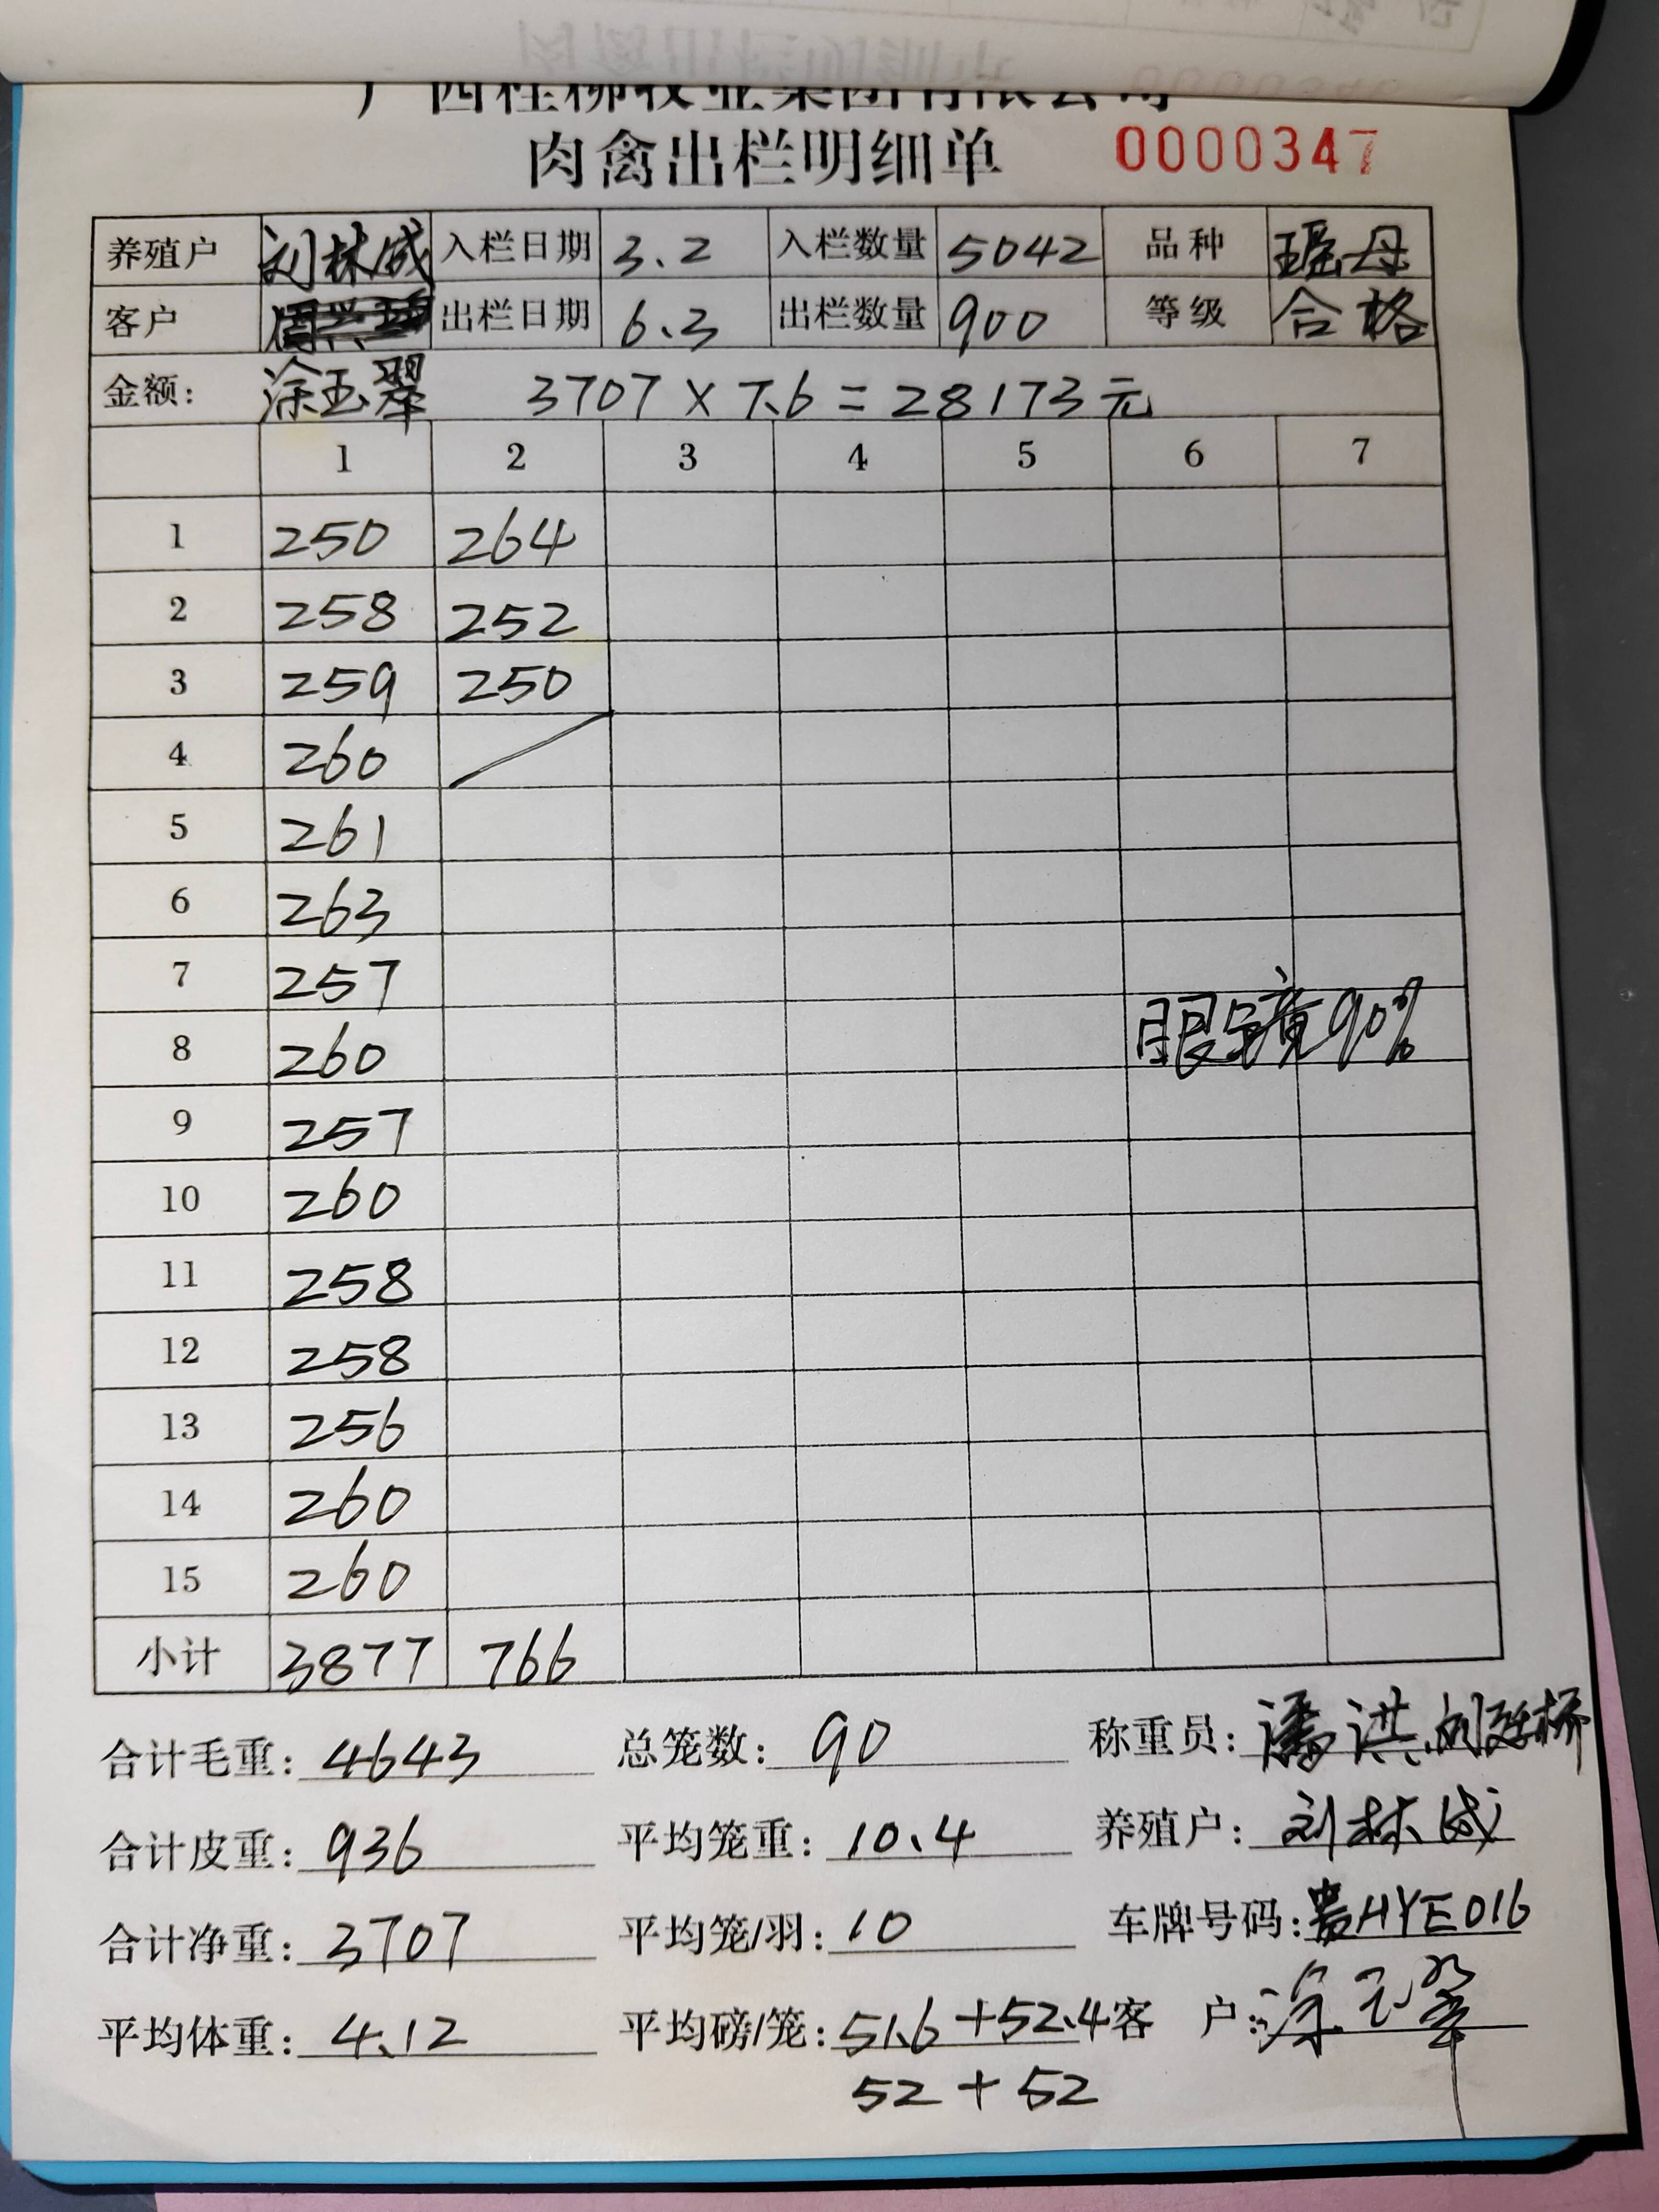 广西桂柳牧业集团有限公司
肉禽出栏明细单 0000347
养殖户 刘林成 入栏日期 3.2 入栏数量 5042 品种 瑶母
客户 出栏日期 6.3 出栏数量 900 等级 合格
金额: 涂玉翠 3707×7.6=28173元
1 2 3 4 5 6 7
1 250 264
2 258 252
3 259 250
4 260
5 261
6 263
7 257
8 260 眼镜90%
9 257
10 260
11 258
12 258
13 256
14 260
15 260
小计 3877 766
合计毛重: 4643 总笼数: 90 称重员: 潘洪
合计皮重: 936 平均笼重: 10.4 养殖户: 刘林成
合计净重: 3707 平均笼/羽: 10 车牌号码: 贵HYE016
平均体重: 4.12 平均磅/笼: 51.6+52.4 客户: 涂玉翠
52+52